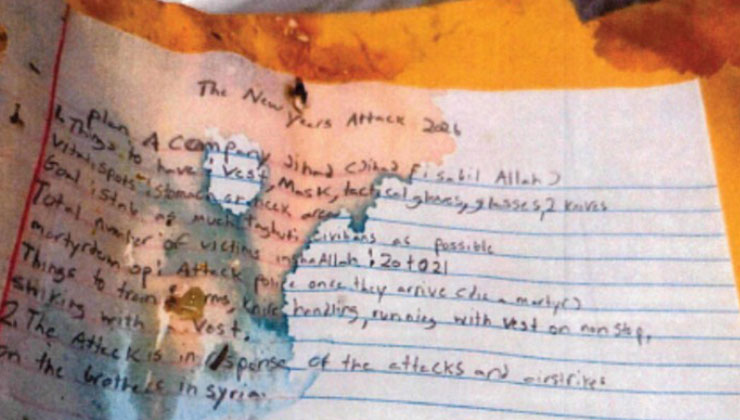 The New Years Attack 2026
Plan A Company Jihad (Jihad fi sabil Allah)
1. Things to have : Vest, Mask, tactical gloves, glasses, 2 knives
Vital spots : stomach or neck area
Goal : stab as much taghuti civilians as possible
Total number of victims inshaAllah : 20 to 21
martyrdom op : Attack police once they arrive (die a martyr)
Things to train : arms, knife handling, running with vest on non stop,
striking with Vest.
2. The Attack is in response of the attacks and airstrikes
on the brothers in syria.